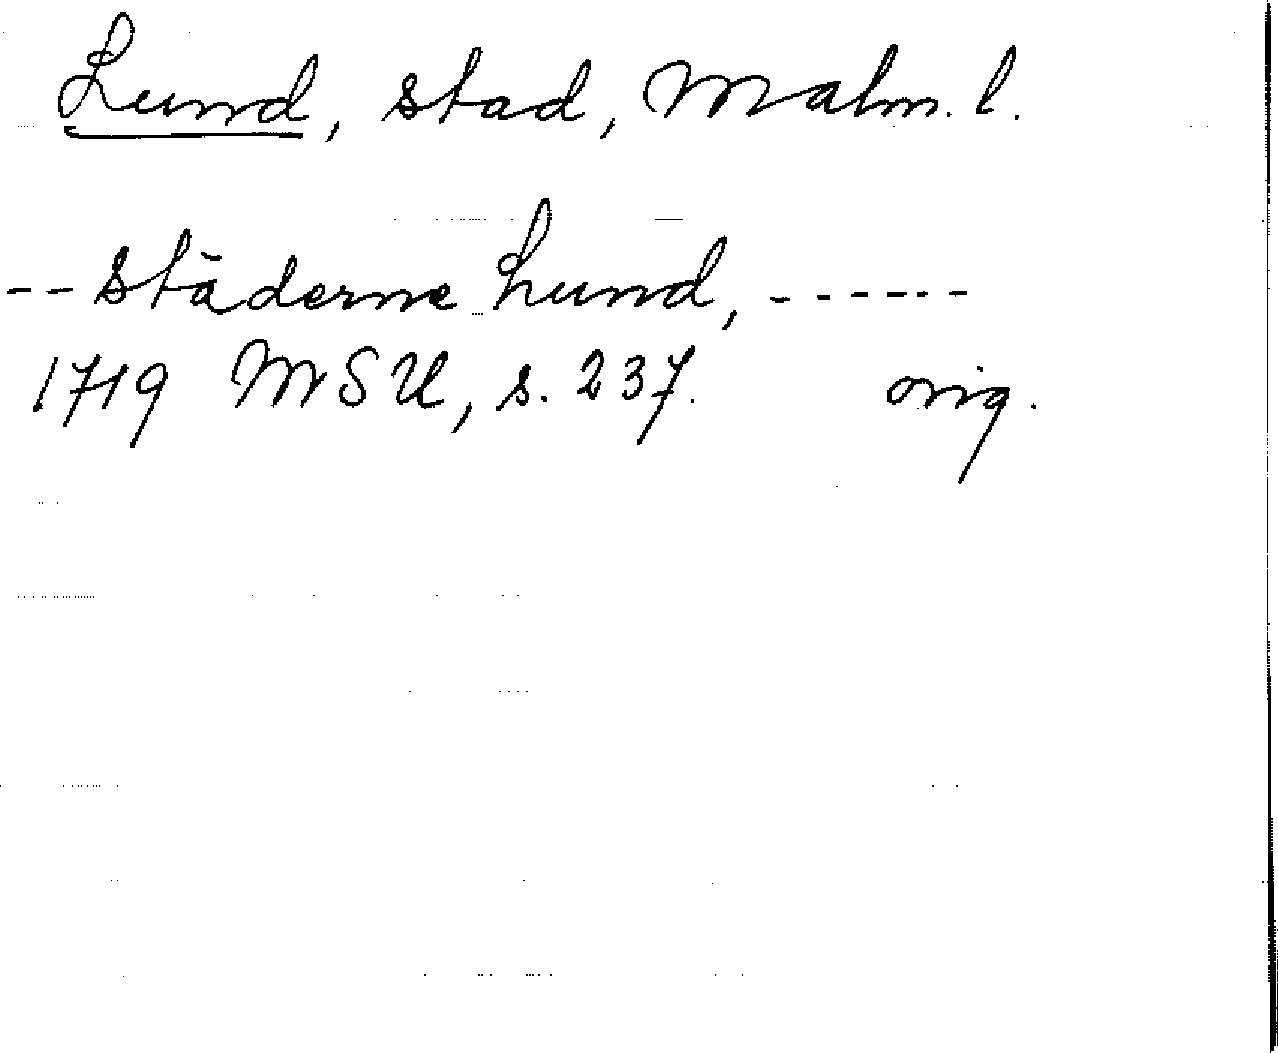 Lund, stad, Malm. l.
-- städerne Lund, ------
1719 MSU, s. 237. orig.